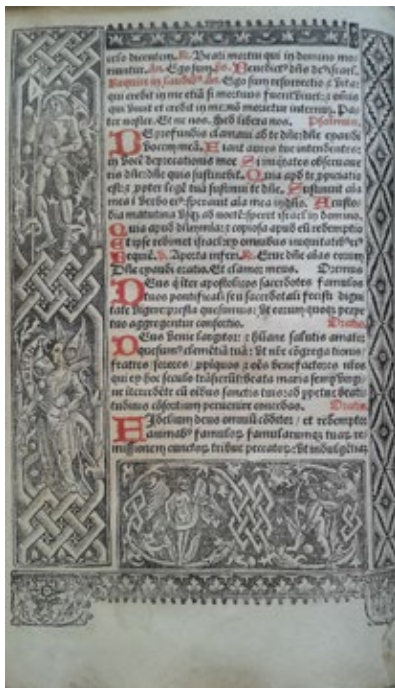 celo dicentem. R. Beati mortui qui in domino mo-
riuntur. An. Ego sum. Ps. Benedict⁹ dñs de⁹ israel.
Require in laudib⁹. An. Ego sum resurrectio & vita:
qui credit in me etiā si mortuus fuerit vivet: & omnis
qui vivit et credit in me nō morietur in eternū. Pa-
ter noster. Et ne nos. Sed libera nos. Psalmus.
DE profundis clamavi ad te dñe: dñe exaudi
vocem meā. Fiant aures tue intendentes:
in vocē deprecationis mee Si iniquitates observave-
ris dñe: dñe quis sustinebit. Quia apd te ppiciatio
est: & ppter legē tuā sustinui te dñe. Sustinuit aīa
mea ī verbo ei⁹: speravit aīa mea in dño. A custo-
dia matutina vsq; ad noctē: speret israel in domino.
Quia apud dñm mīa: & copiosa apud eū redemptio
Et ipse redimet israel: ex omnibus iniquitatib⁹ ei⁹
Requiē. V. A porta inferi. R. Erue dñe aīas eorum
Dñe exaudi oratio. Et clamor meus. Oremus
DEus q inter apostolicos sacerdotes famulos
tuos pontificali seu sacerdotali fecisti digni
tate vigere: presta quesumus: vt eorum quoq; perpe
tuo aggregentur consortio. Oratio.
DEus venie largitor: & hūane salutis amator
quesum⁹ clemētiā tuā: vt nr̄e cōgregationis
fratres sorores / ppīquos & oēs benefactores nr̄os
qui ex hoc seculo trāsierūt: beata maria semp virgi-
ne intercedēte cū oībus sanctis tuis: ad ppetue beati-
tudinis cōsortium pervenire concedas. Oratio
FIdelium deus omniū cōditor / et redemptor
animab⁹ famuloꝝ famularumq; tuaꝝ re-
missionem cunctoꝝ tribue peccatoꝝ: vt indulgētiā